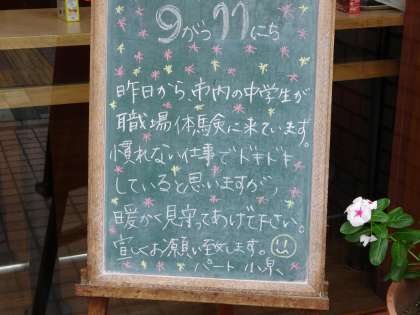 9がつ11にち
昨日から、市内の中学生が
職場体験に来ています。
慣れない仕事でドキドキ
していると思いますが、
暖かく見守ってあげて下さい。
宜しくお願い致します。
パート 小泉